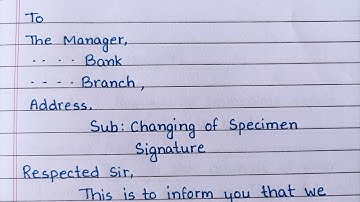 To
The Manager,
.... Bank
.... Branch,
Address.
Sub: Changing of Specimen
Signature
Respected Sir,
This is to inform you that we